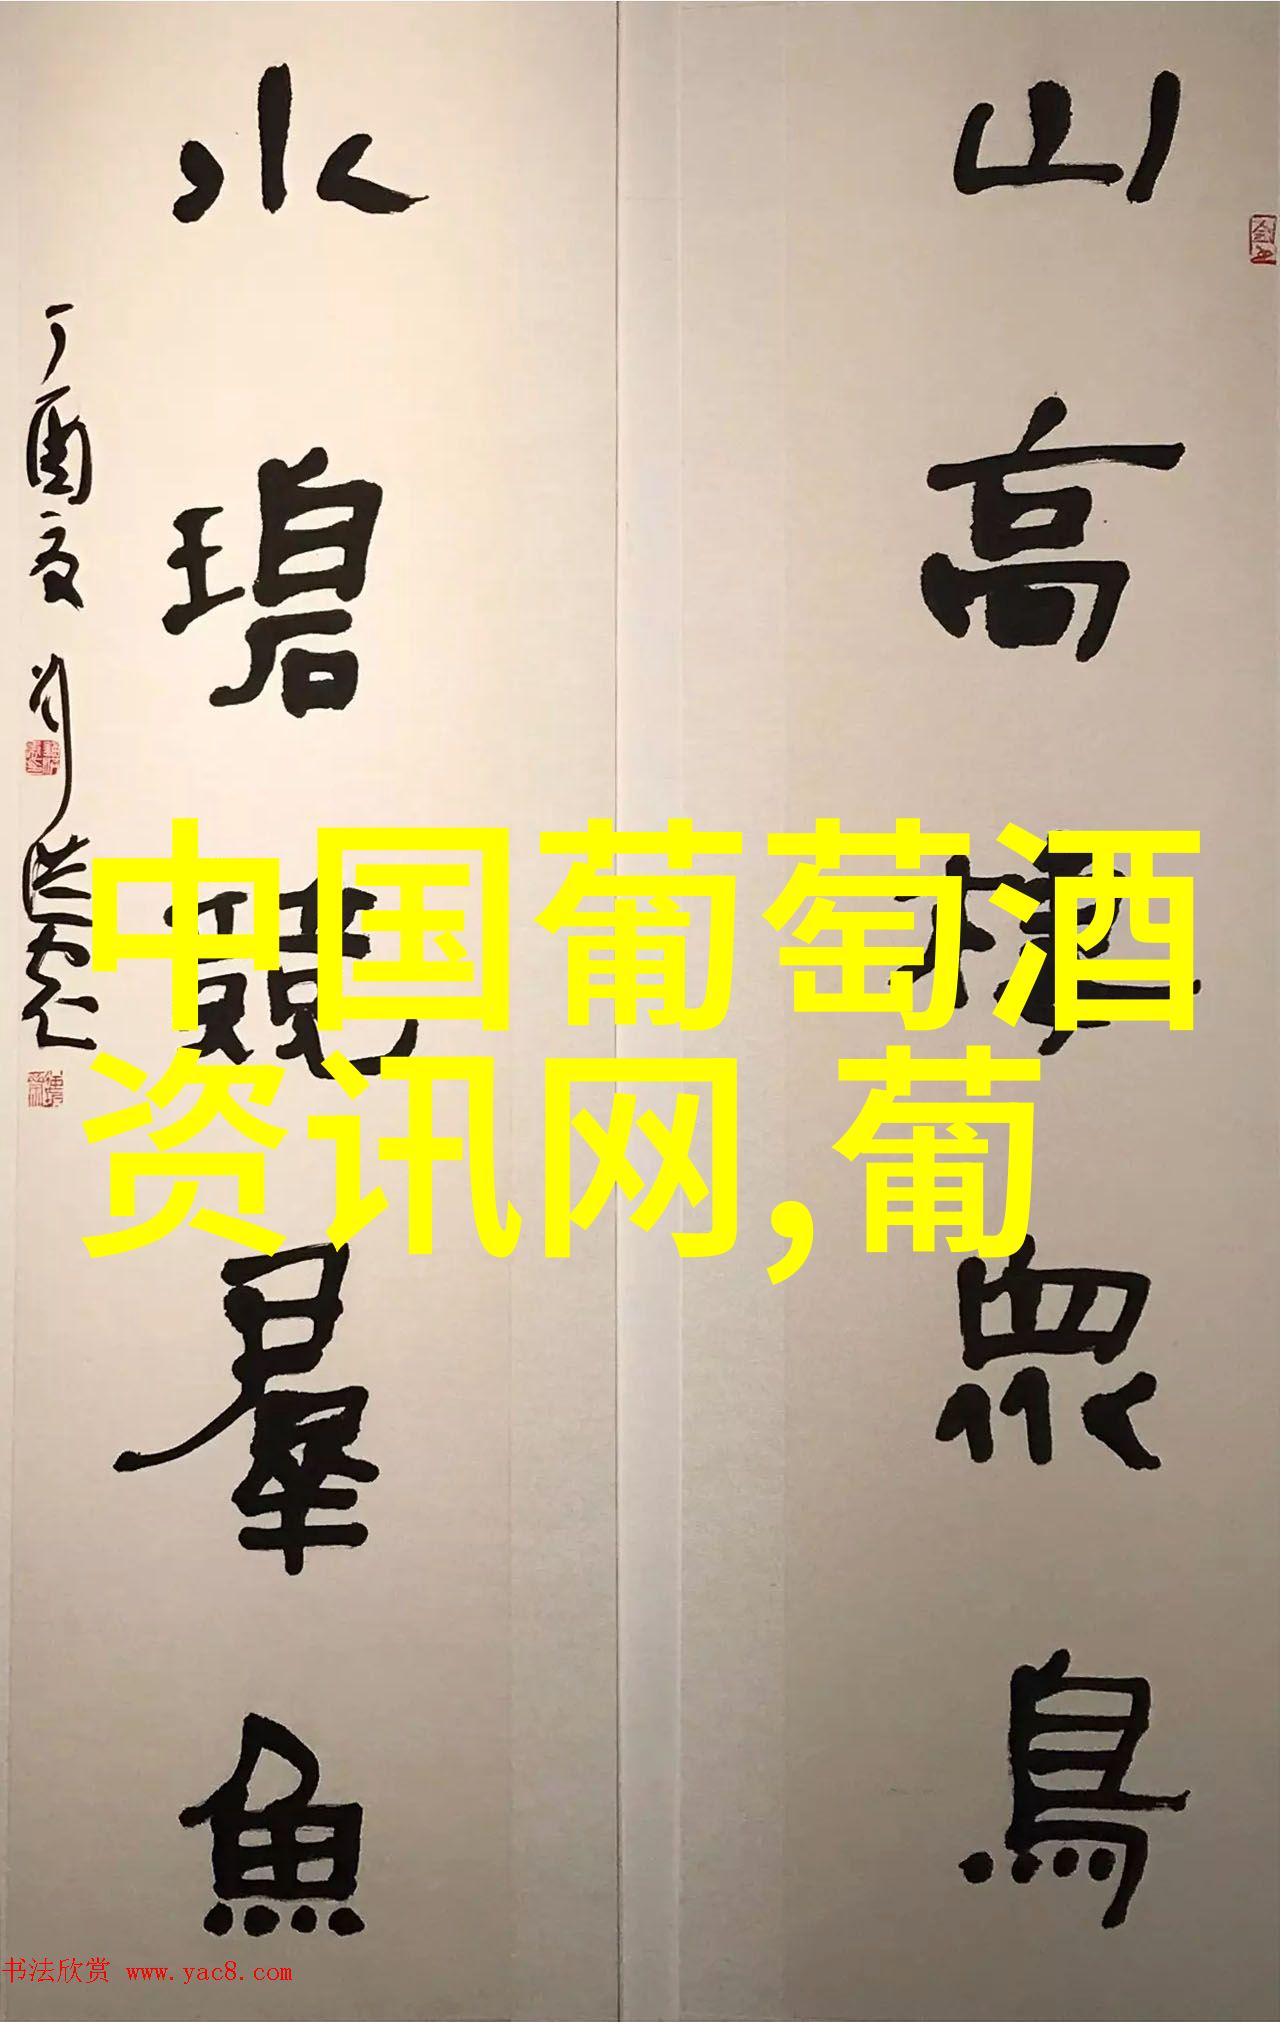 山高棲眾鳥
水碧競羣魚
丁酉夏 刘洪彪
中国葡萄酒
资讯网,葡
书法欣赏 www.yac8.com